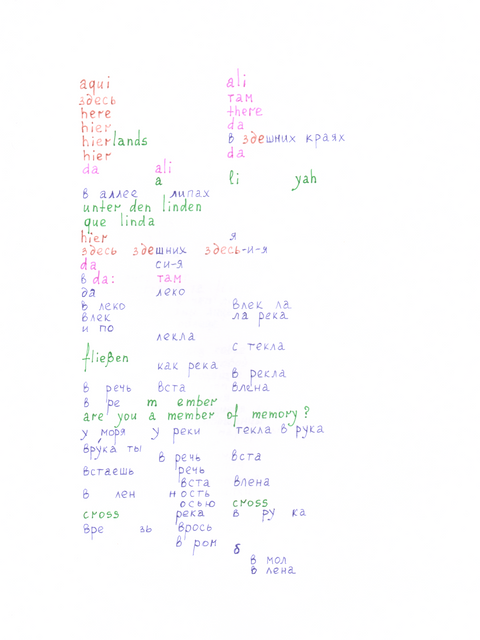 aqui ali
здесь там
here there
hier da
hierlands в здешних краях
hier da
da ali
a li yah
в аллее липах
unter den linden
que linda
hier я
здесь здешних здесь-и-я
da си-я
в da: там
да леко
в леко влек ла
влек ла река
и по
лекла
с текла
fließen
как река
в рекла
в речь вста влена
в ре m ember
are you a member of memory?
у моря у реки текла в рука
врука ты
в речь вста
встаешь речь
вста влена
в лен ность
осью cross
cross река в ру ка
вре зь врось
в ром б
в мол
в лена